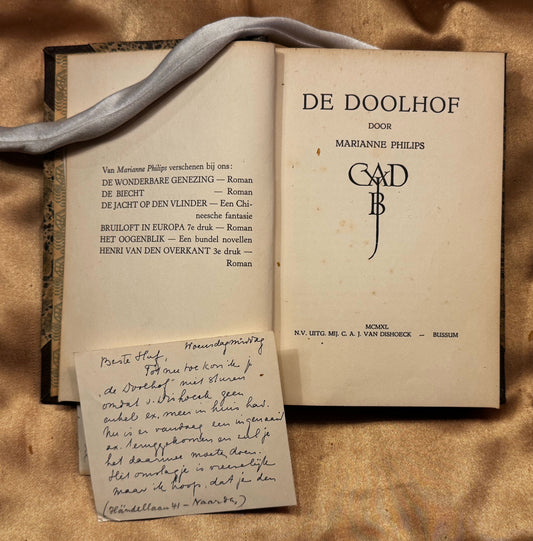 Van Marianne Philips verschenen bij ons:
DE WONDERBARE GENEZING — Roman
DE BIECHT — Roman
DE JACHT OP DEN VLINDER — Een Chi-
neesche fantasie
BRUILOFT IN EUROPA 7e druk — Roman
HET OOGENBLIK — Een bundel novellen
HENRI VAN DEN OVERKANT 3e druk —
Roman
DE DOOLHOF
DOOR
MARIANNE PHILIPS
CAJD
B
MCMXL
N.V. UITG. MIJ. C. A. J. VAN DISHOECK — BUSSUM
Woensdagmiddag
Beste Huf,
Tot nu toe kon ik je
"de Doolhof" niet sturen
omdat v. Dishoeck geen
enkel ex. meer in huis had.
Nu is er vandaag een ingenaaid
ex. teruggekomen en zul je
het daarmee moeten doen.
Het omslagje is vreeselijk
maar ik hoop, dat je den
(Händellaan 41 – Naarden)